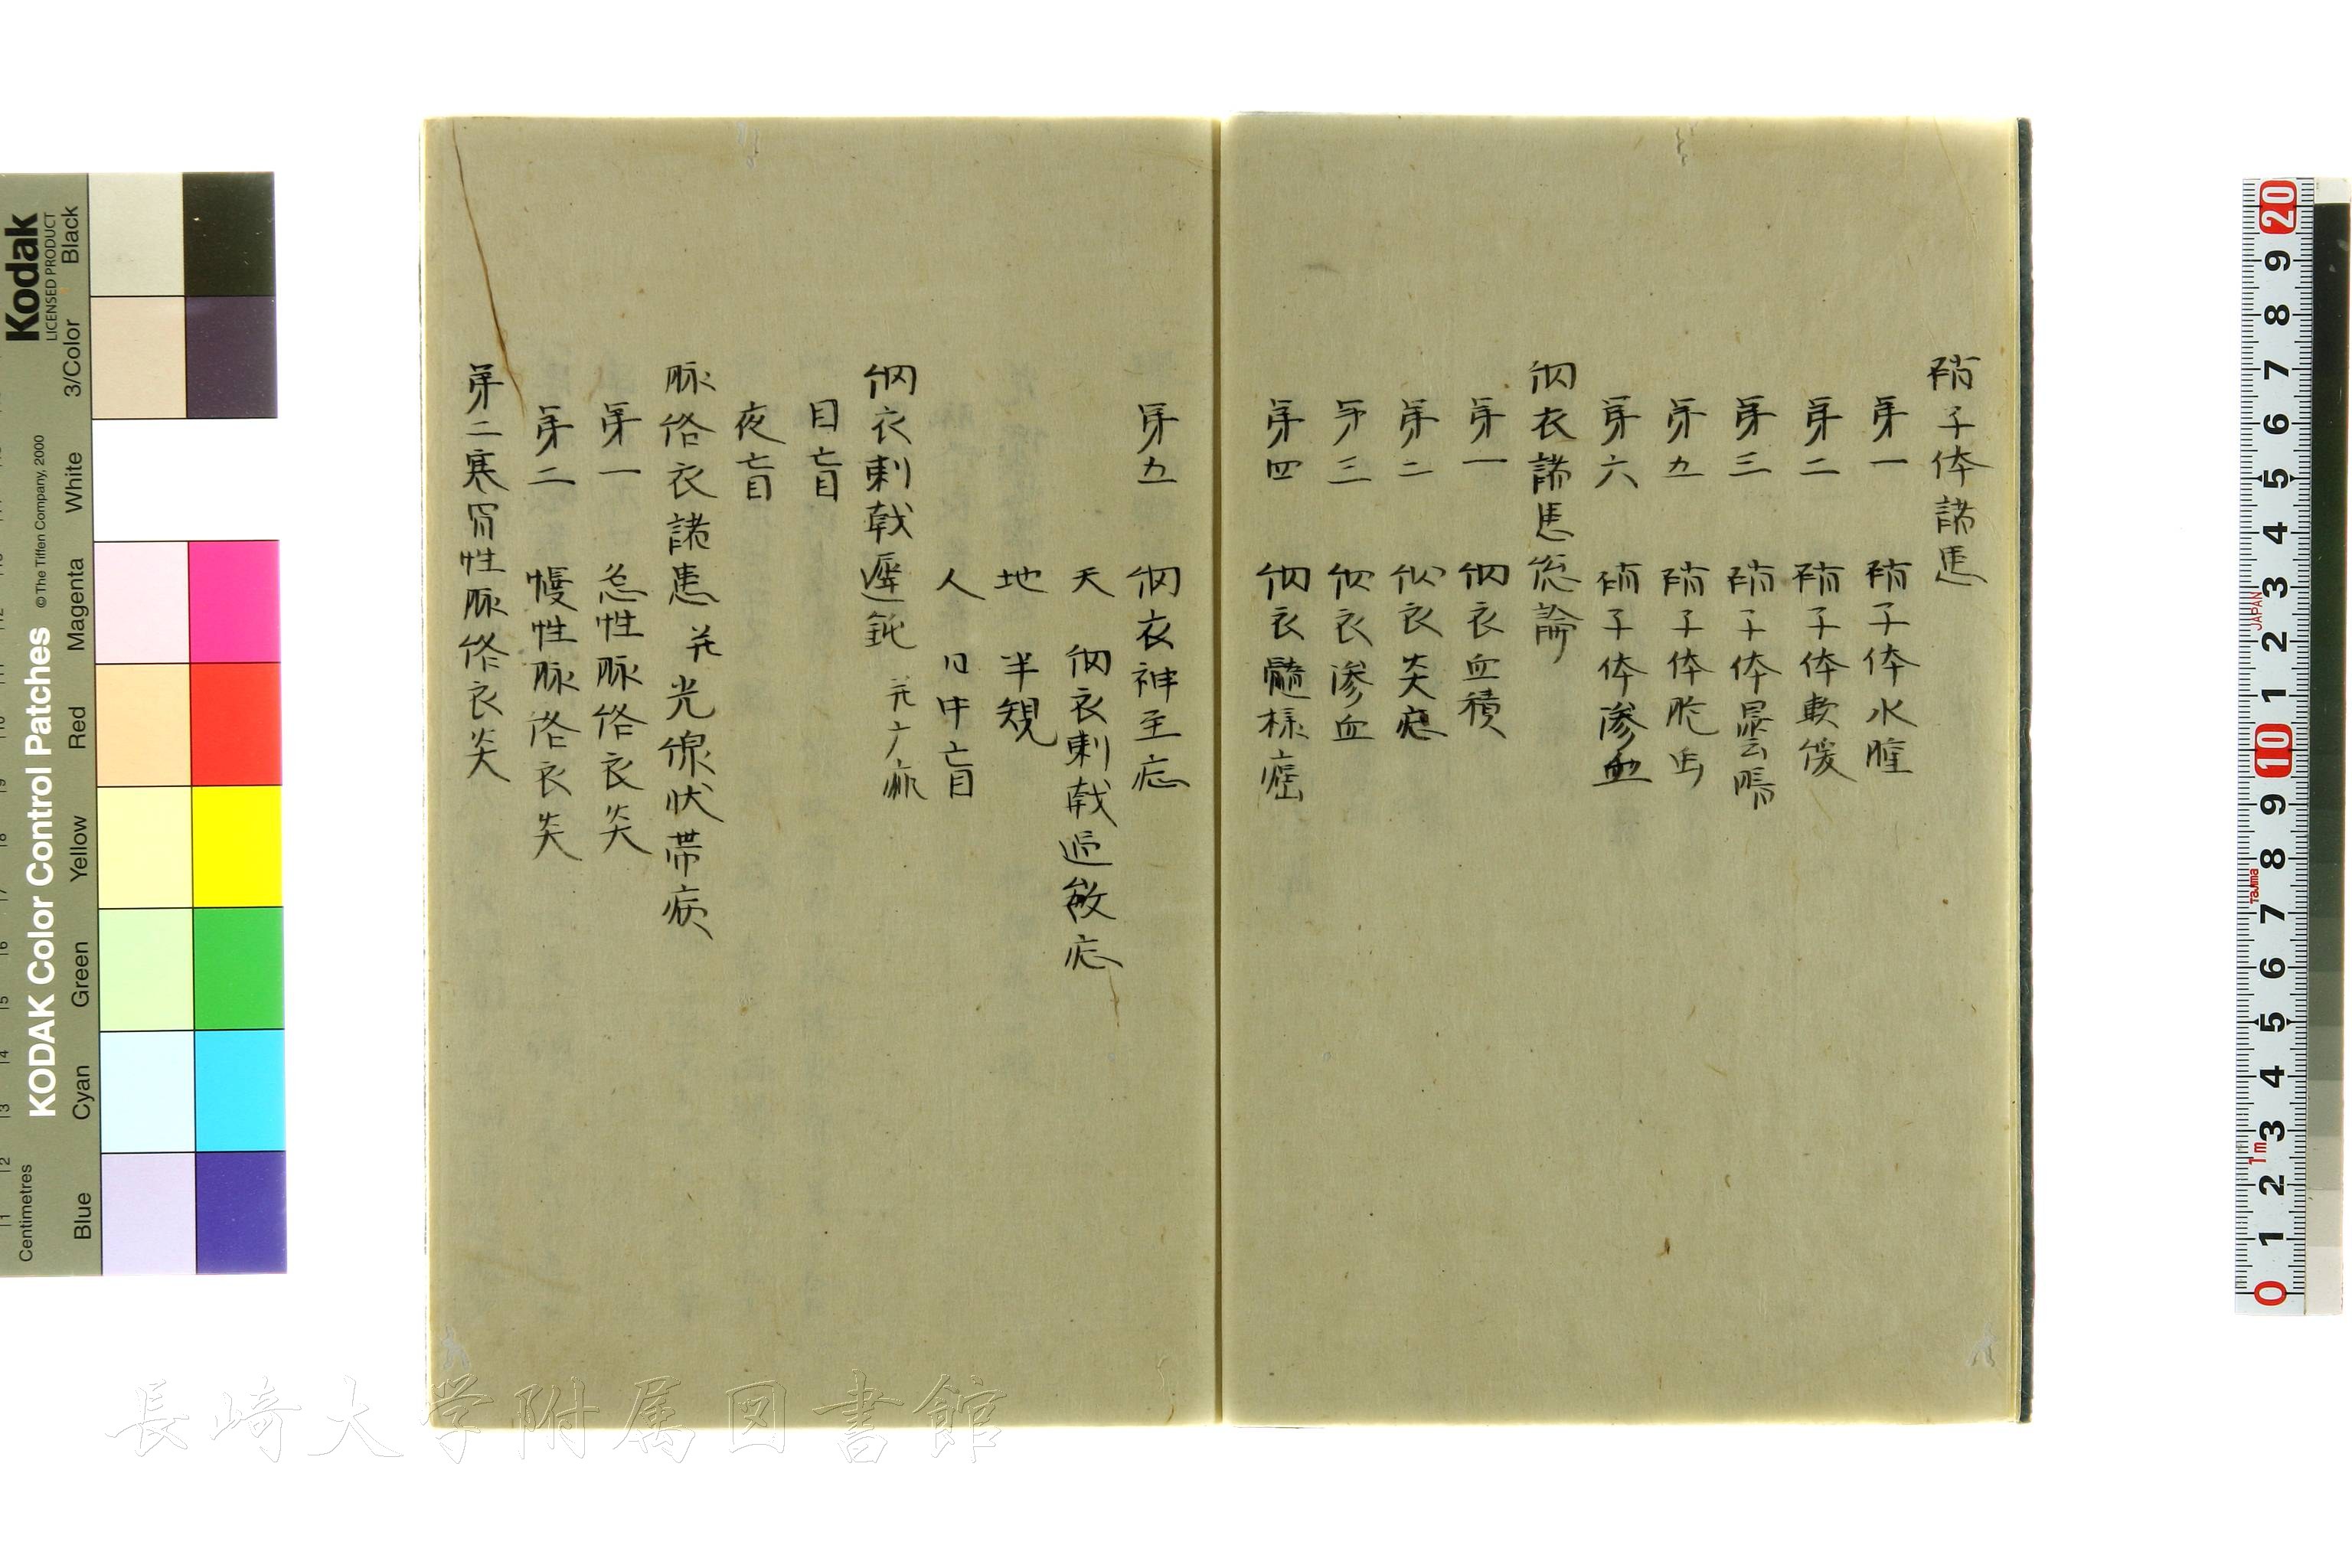 硝子体諸患
第一 硝子体水腫
第二 硝子体軟緩
第三 硝子体曇暗
第五 硝子体脱出
第六 硝子体滲血
網衣諸患総論
第一 網衣血積
第二 網衣炎
第三 網衣滲血
第四 網衣髄様
第五 網衣神
天 網衣刺戟過敏
地 半視
人 日中盲
網衣刺戟遅鈍
目盲
夜盲
脈絡衣諸患 并光線状帯病
第一 急性脈絡衣炎
第二 慢性脈絡衣炎
第二寒冒性脈絡衣炎
長崎大学附属図書館
Kodak
LICENSED PRODUCT
KODAK Color Control Patches
© The Tiffen Company, 2000
Centimetres
Blue Cyan Green Yellow Red Magenta White 3/Color Black
20 9 8 7 6 5 4 3 2 1 10 9 8 7 6 5 4 3 2 1 0
JAPAN
Tajima
1m